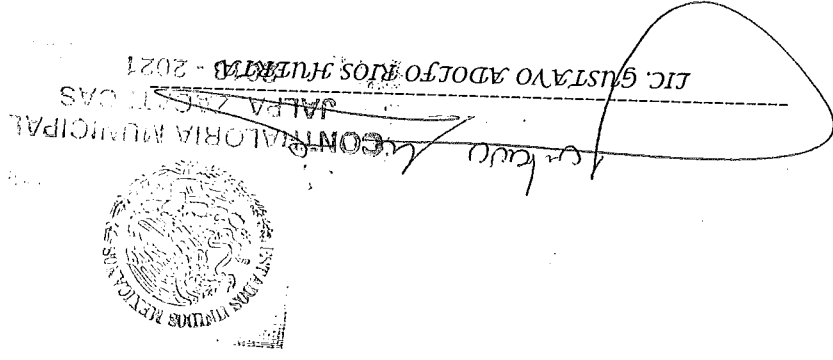 ESTADOS UNIDOS MEXICANOS
CONTRALORIA MUNICIPAL
JALPA ZACATECAS
- 2021
LIC. GUSTAVO ADOLFO RIOS HUERTA